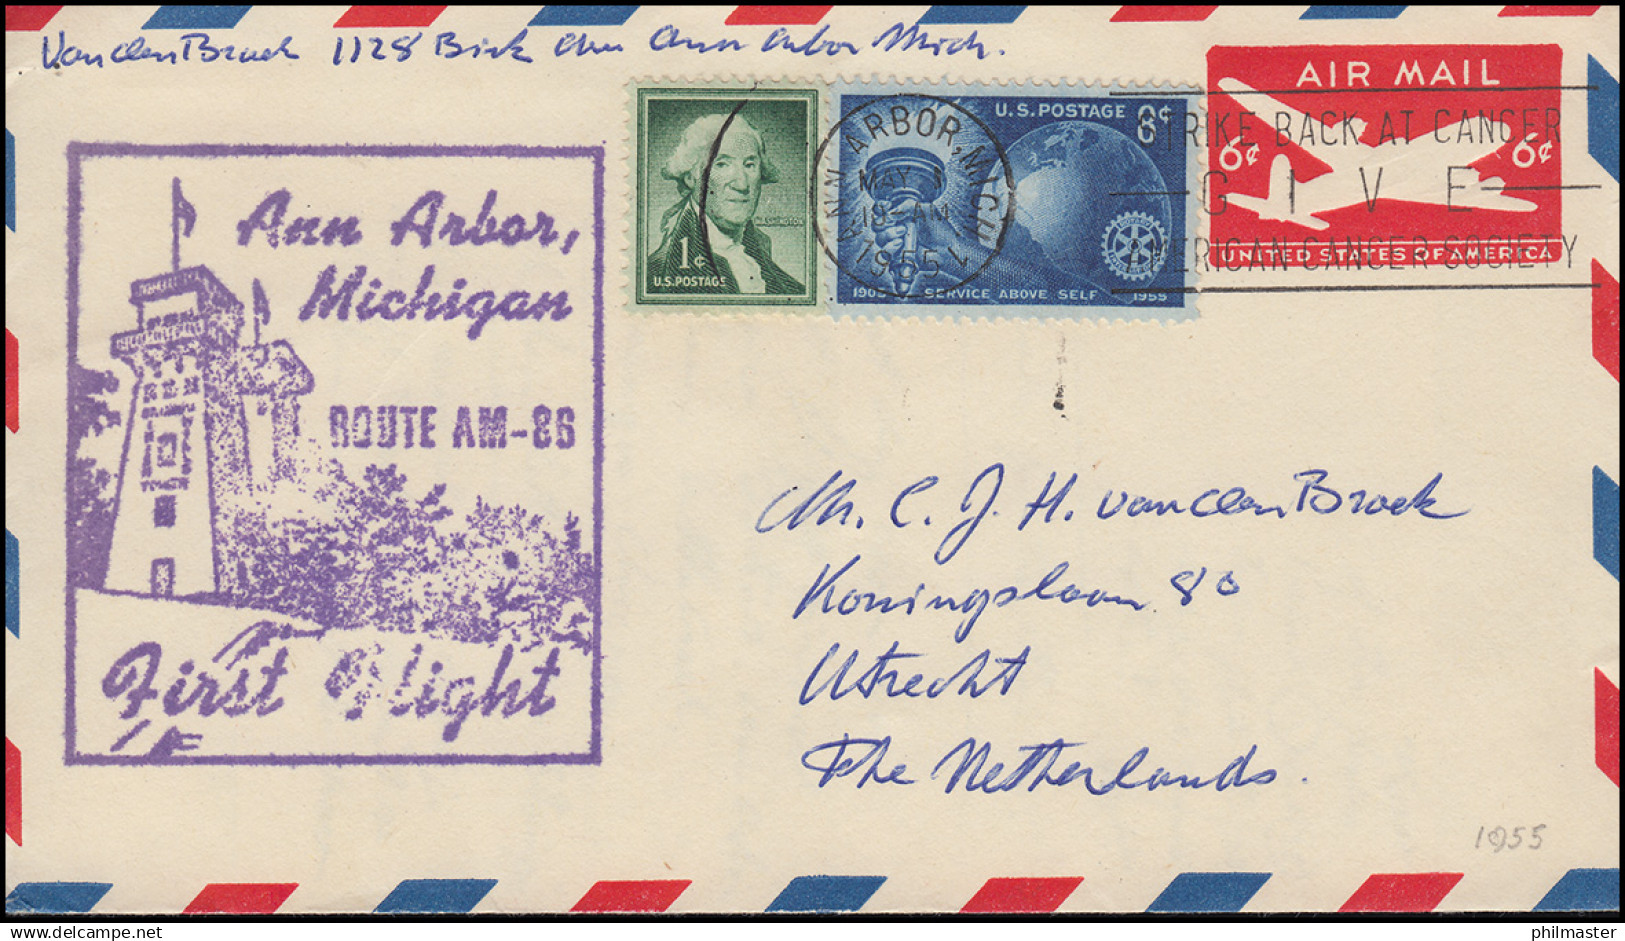 VandenBroek 1128 Birk Ave Ann Arbor Mich.
AIR MAIL
6¢ 6¢
UNITED STATES OF AMERICA
WASHINGTON
1¢
U.S. POSTAGE
U.S. POSTAGE 8¢
1905 SERVICE ABOVE SELF 1955
ANN ARBOR, MICH.
MAY 1
AM
1955
STRIKE BACK AT CANCER
GIVE
AMERICAN CANCER SOCIETY
Ann Arbor,
Michigan
ROUTE AM-86
First Flight
Mr. C. J. H. vandenBroek
Koningslaan 80
Utrecht
The Netherlands.
1955
philmaster